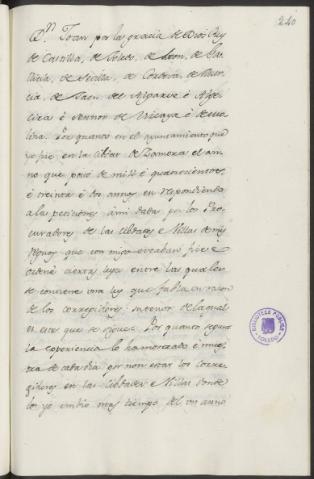 240
Dn. Joan por la gracia de Dios Rey
de Castilla, de Toledo, de Leon, de Ga-
llicia, de Sevilla, de Cordova, de Mur-
cia, de Jaen, del Algarve é Alge-
cira é Sennor de Vizcaya é de Mo-
lina. Por quanto en el Ayuntamiento que
yo fice en la cibdat de Zamora el an-
no que pasó de mill é quatrocientos
é treinta é dos annos, en respondiendo
a las peticiones á mi dadas por los Pro-
curadores de las Cibdades e Villas de mis
Regnos que con migo estaban fice é
ordené ciertas leyes entre las quales
se contiene una ley que fabla en razon
de los corregidores su tenor de la qual
es este que se sigue. Por quanto segunt
la esperiencia lo ha mostrado é mues-
tra de cada dia por non estar los Corre-
gidores en las Cibdades e Villas donde
los yo embio mas tiempo del un anno
BIBLIOTECA PUBLICA
TOLEDO